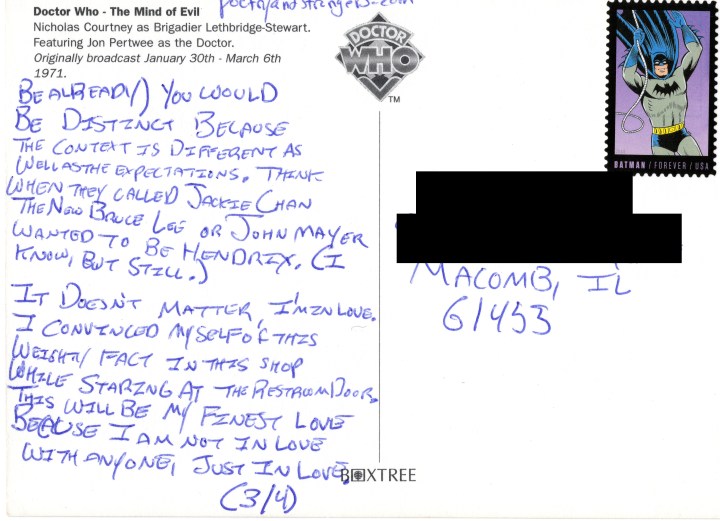 poetryandstrangers.com
Doctor Who - The Mind of Evil
Nicholas Courtney as Brigadier Lethbridge-Stewart.
Featuring Jon Pertwee as the Doctor.
Originally broadcast January 30th - March 6th
1971.
BE ALREADY) YOU WOULD
BE DISTINCT BECAUSE
THE CONTEXT IS DIFFERENT AS
WELL AS THE EXPECTATIONS. THINK
WHEN THEY CALLED JACKIE CHAN
THE NEW BRUCE LEE OR JOHN MAYER
WANTED TO BE HENDRIX. (I
KNOW, BUT STILL.)
IT DOESN'T MATTER, I'M IN LOVE.
I CONVINCED MYSELF OF THIS
WEIGHTY FACT IN THIS SHOP
WHILE STARING AT THE RESTROOM DOOR.
THIS WILL BE MY FINEST LOVE
BECAUSE I AM NOT IN LOVE
WITH ANYONE, JUST IN LOVE.
(3/4)
DOCTOR
WHO
TM
BOXTREE
BATMAN / FOREVER / USA
MACOMB, IL
61453